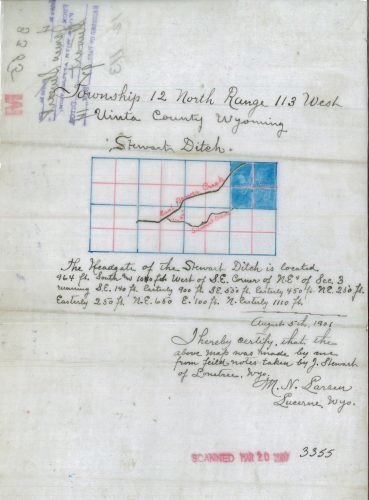 12-113
Township 12 North Range 113 West
Uinta County Wyoming
Stewart Ditch.
East Beaver Creek
The Headgate of the Stewart Ditch is located
964 ft. South and 1040 feet West of S.E. Corner of N.E¼ of Sec. 3
running S.E. 140 ft. Easterly 90 ft. S.E. 550 ft. Easterly 450 ft. N.E. 250 ft.
Easterly 250 ft. N.E. 650 E. 100 ft. N. Easterly 1100 ft.
August 5th, 1901
I hereby certify, that the
above map was made by me
from field notes taken by J. Stewart
of Lonetree, Wyo.
M. N. Larsen
Lucerne, Wyo.
3355
SCANNED MAR 20